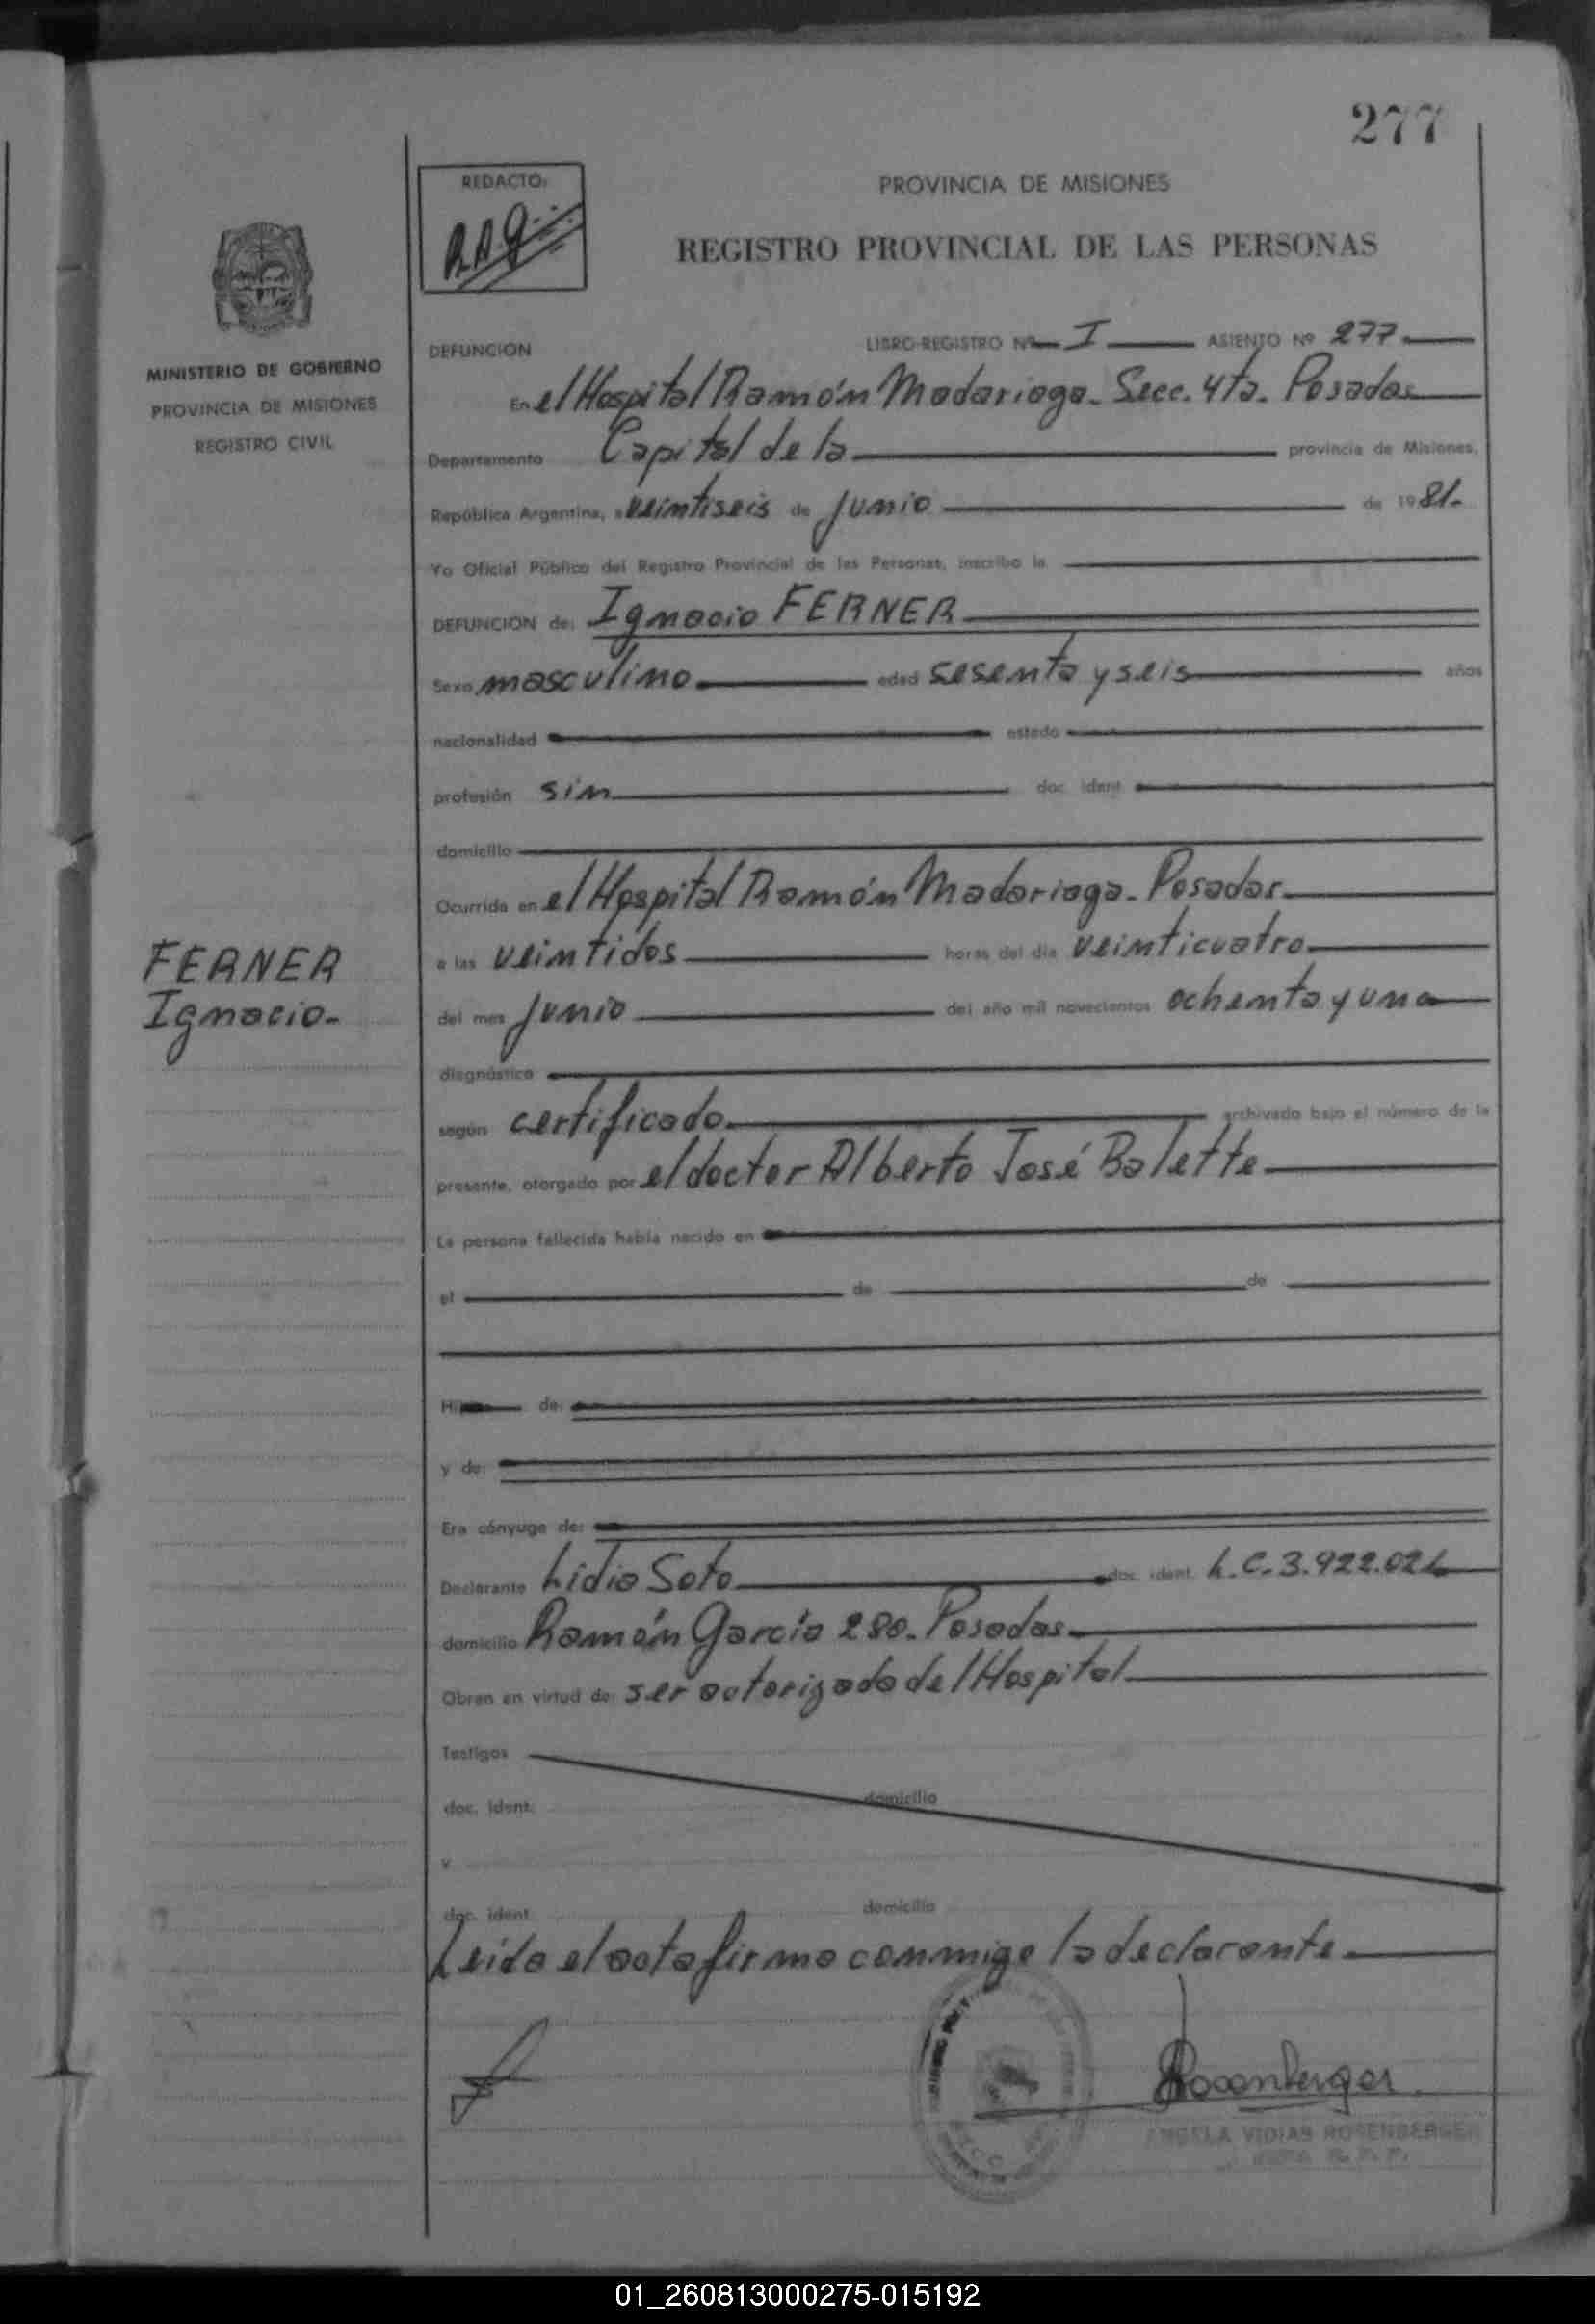 277
REDACTO:
PROVINCIA DE MISIONES
REGISTRO PROVINCIAL DE LAS PERSONAS
MINISTERIO DE GOBIERNO
PROVINCIA DE MISIONES
REGISTRO CIVIL
DEFUNCION LIBRO-REGISTRO Nº I ASIENTO Nº 277
En el Hospital Ramón Madariaga- Secc. 4ta. Posadas
Departamento Capital de la provincia de Misiones,
República Argentina, a veintiseis de Junio de 1981-
Yo Oficial Público del Registro Provincial de las Personas, inscribo la
DEFUNCION de: Ignacio FERNER
Sexo masculino edad sesenta y seis años
nacionalidad estado
profesión sin doc. ident.
domicilio
Ocurrida en el Hospital Ramón Madariaga- Posadas
FERNER
Ignacio-
a las veintidos horas del día veinticuatro
del mes Junio del año mil novecientos ochenta y uno
diagnóstico
según certificado archivado bajo el número de la
presente, otorgado por el doctor Alberto José Balette
La persona fallecida había nacido en
el de de
H de:
y de:
Era cónyuge de:
Declarante Lidia Soto doc. ident. L.C.3.922.021
domicilio Ramón García 280- Posadas
Obran en virtud de: ser autorizada del Hospital
Testigos
doc. ident. domicilio
y
doc. ident. domicilio
Leida el acta firma conmigo la declarante
Rosenberger
ANGELA VIDIAS ROSENBERGER
01_260813000275-015192